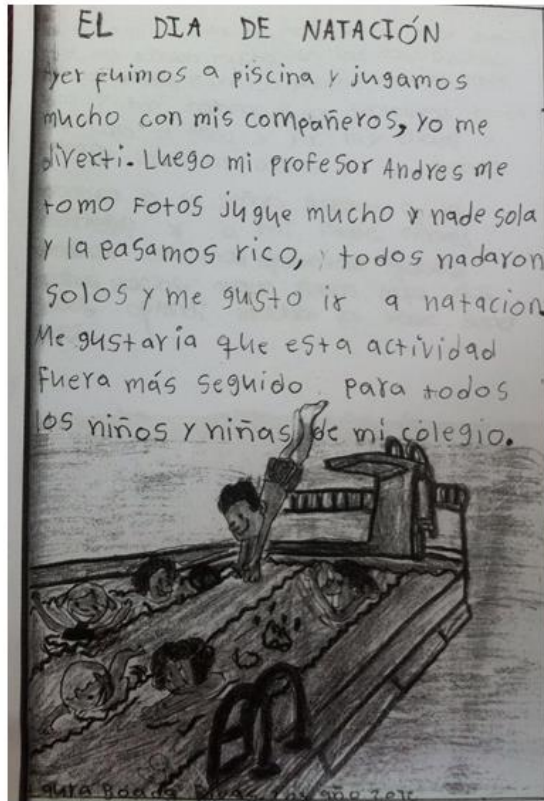 EL DIA DE NATACIÓN
yer fuimos a piscina y jugamos
mucho con mis compañeros, yo me
diverti. Luego mi profesor Andres me
tomo Fotos jugue mucho y nade sola
y la pasamos rico, todos nadaron
solos y me gusto ir a natacion
Me gustaría que esta actividad
Fuera más seguido para todos
los niños y niñas de mi colegio.
Laura